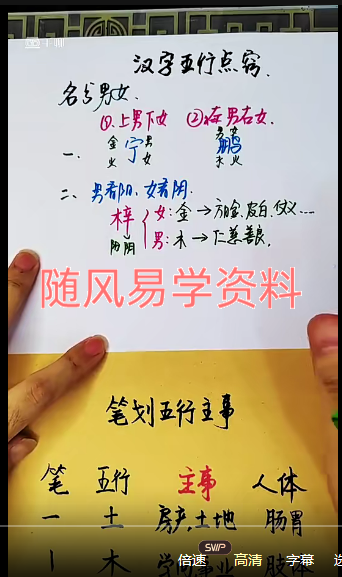 汉字五行点窍.
名分男女.
①.上男下女 ②左男右女.
金 宁 男 男女 鹏
一、 火 女 水火
二、男看阳.女看阴.
梓 女:金→方脸、皮白、仗义……
阳阴 男:木→仁慈善良,
随风易学资料
笔划五行主事
笔 五行 主事 人体
一 土 房产,土地 肠胃
SVIP
倍速 高清 字幕 选
丨 木 学 事业 肢体